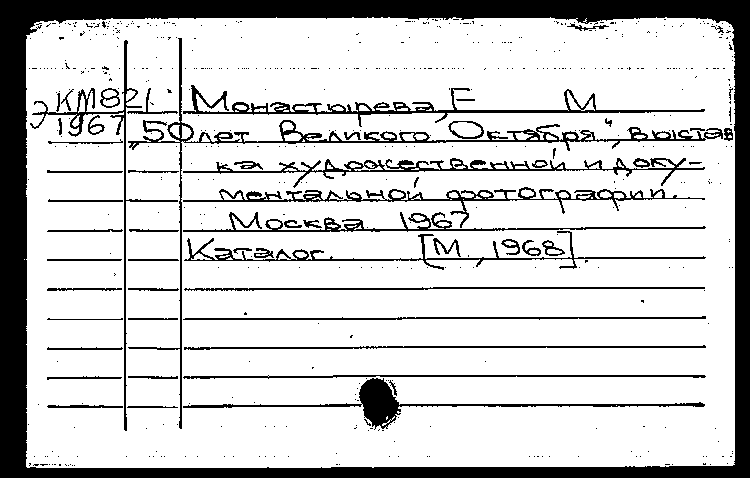 Э КМ821. Монастырева, Г М
1967 „50 лет Великого Октября", выстав
ка художественной и доку-
ментальной фотографии.
Москва 1967
Каталог. [М., 1968].